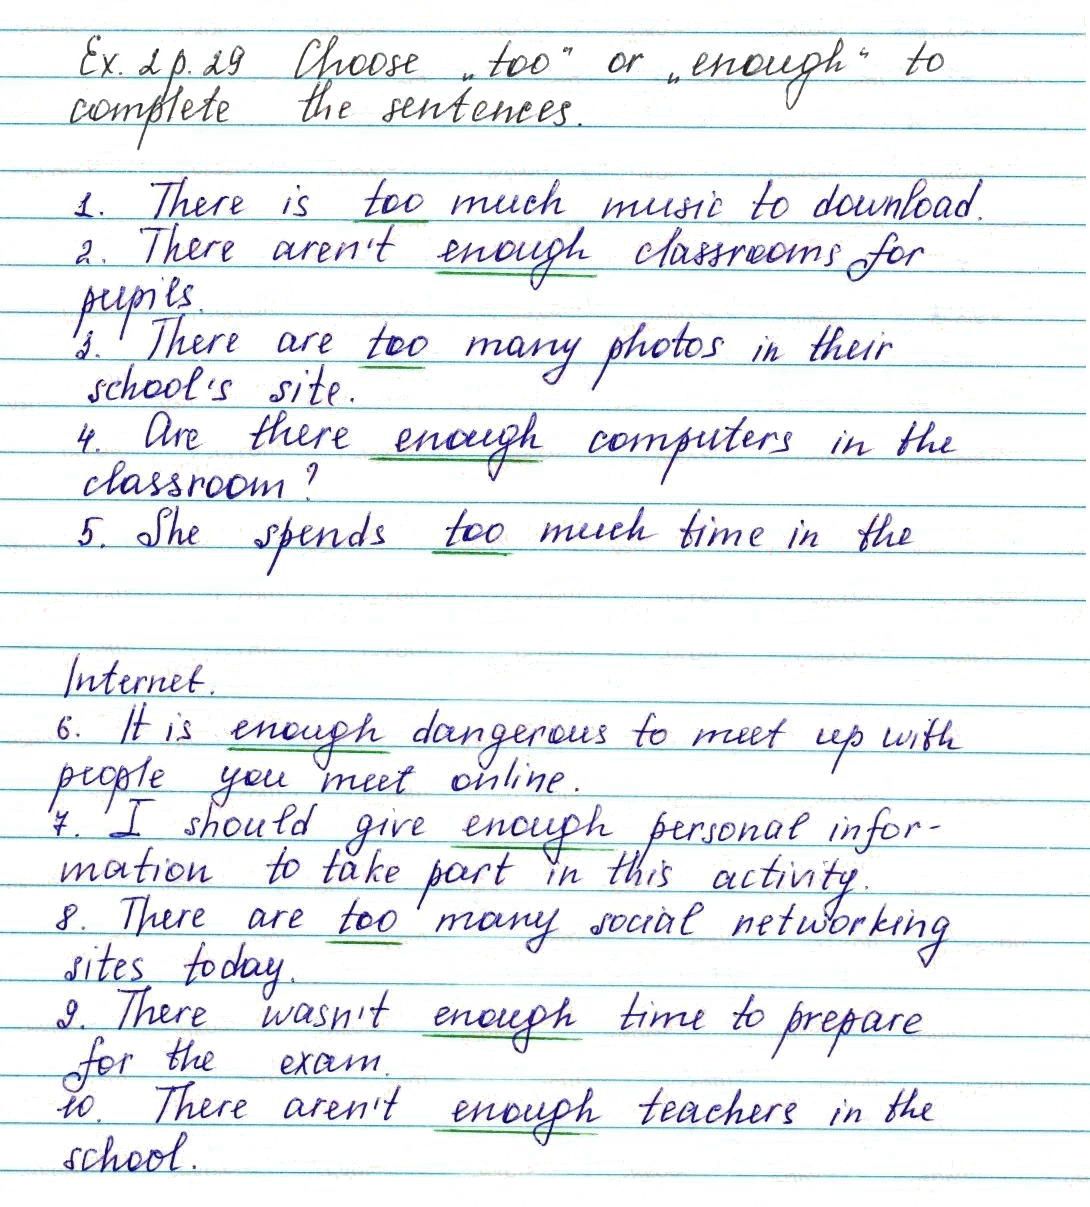 Ex. 2 p. 29 Choose „too“ or „enough“ to
complete the sentences.
1. There is too much music to download.
2. There aren't enough classrooms for
pupils.
3. There are too many photos in their
school's site.
4. Are there enough computers in the
classroom?
5. She spends too much time in the
Internet.
6. It is enough dangerous to meet up with
people you meet online.
7. I should give enough personal infor-
mation to take part in this activity.
8. There are too many social networking
sites today.
9. There wasn't enough time to prepare
for the exam.
10. There aren't enough teachers in the
school.